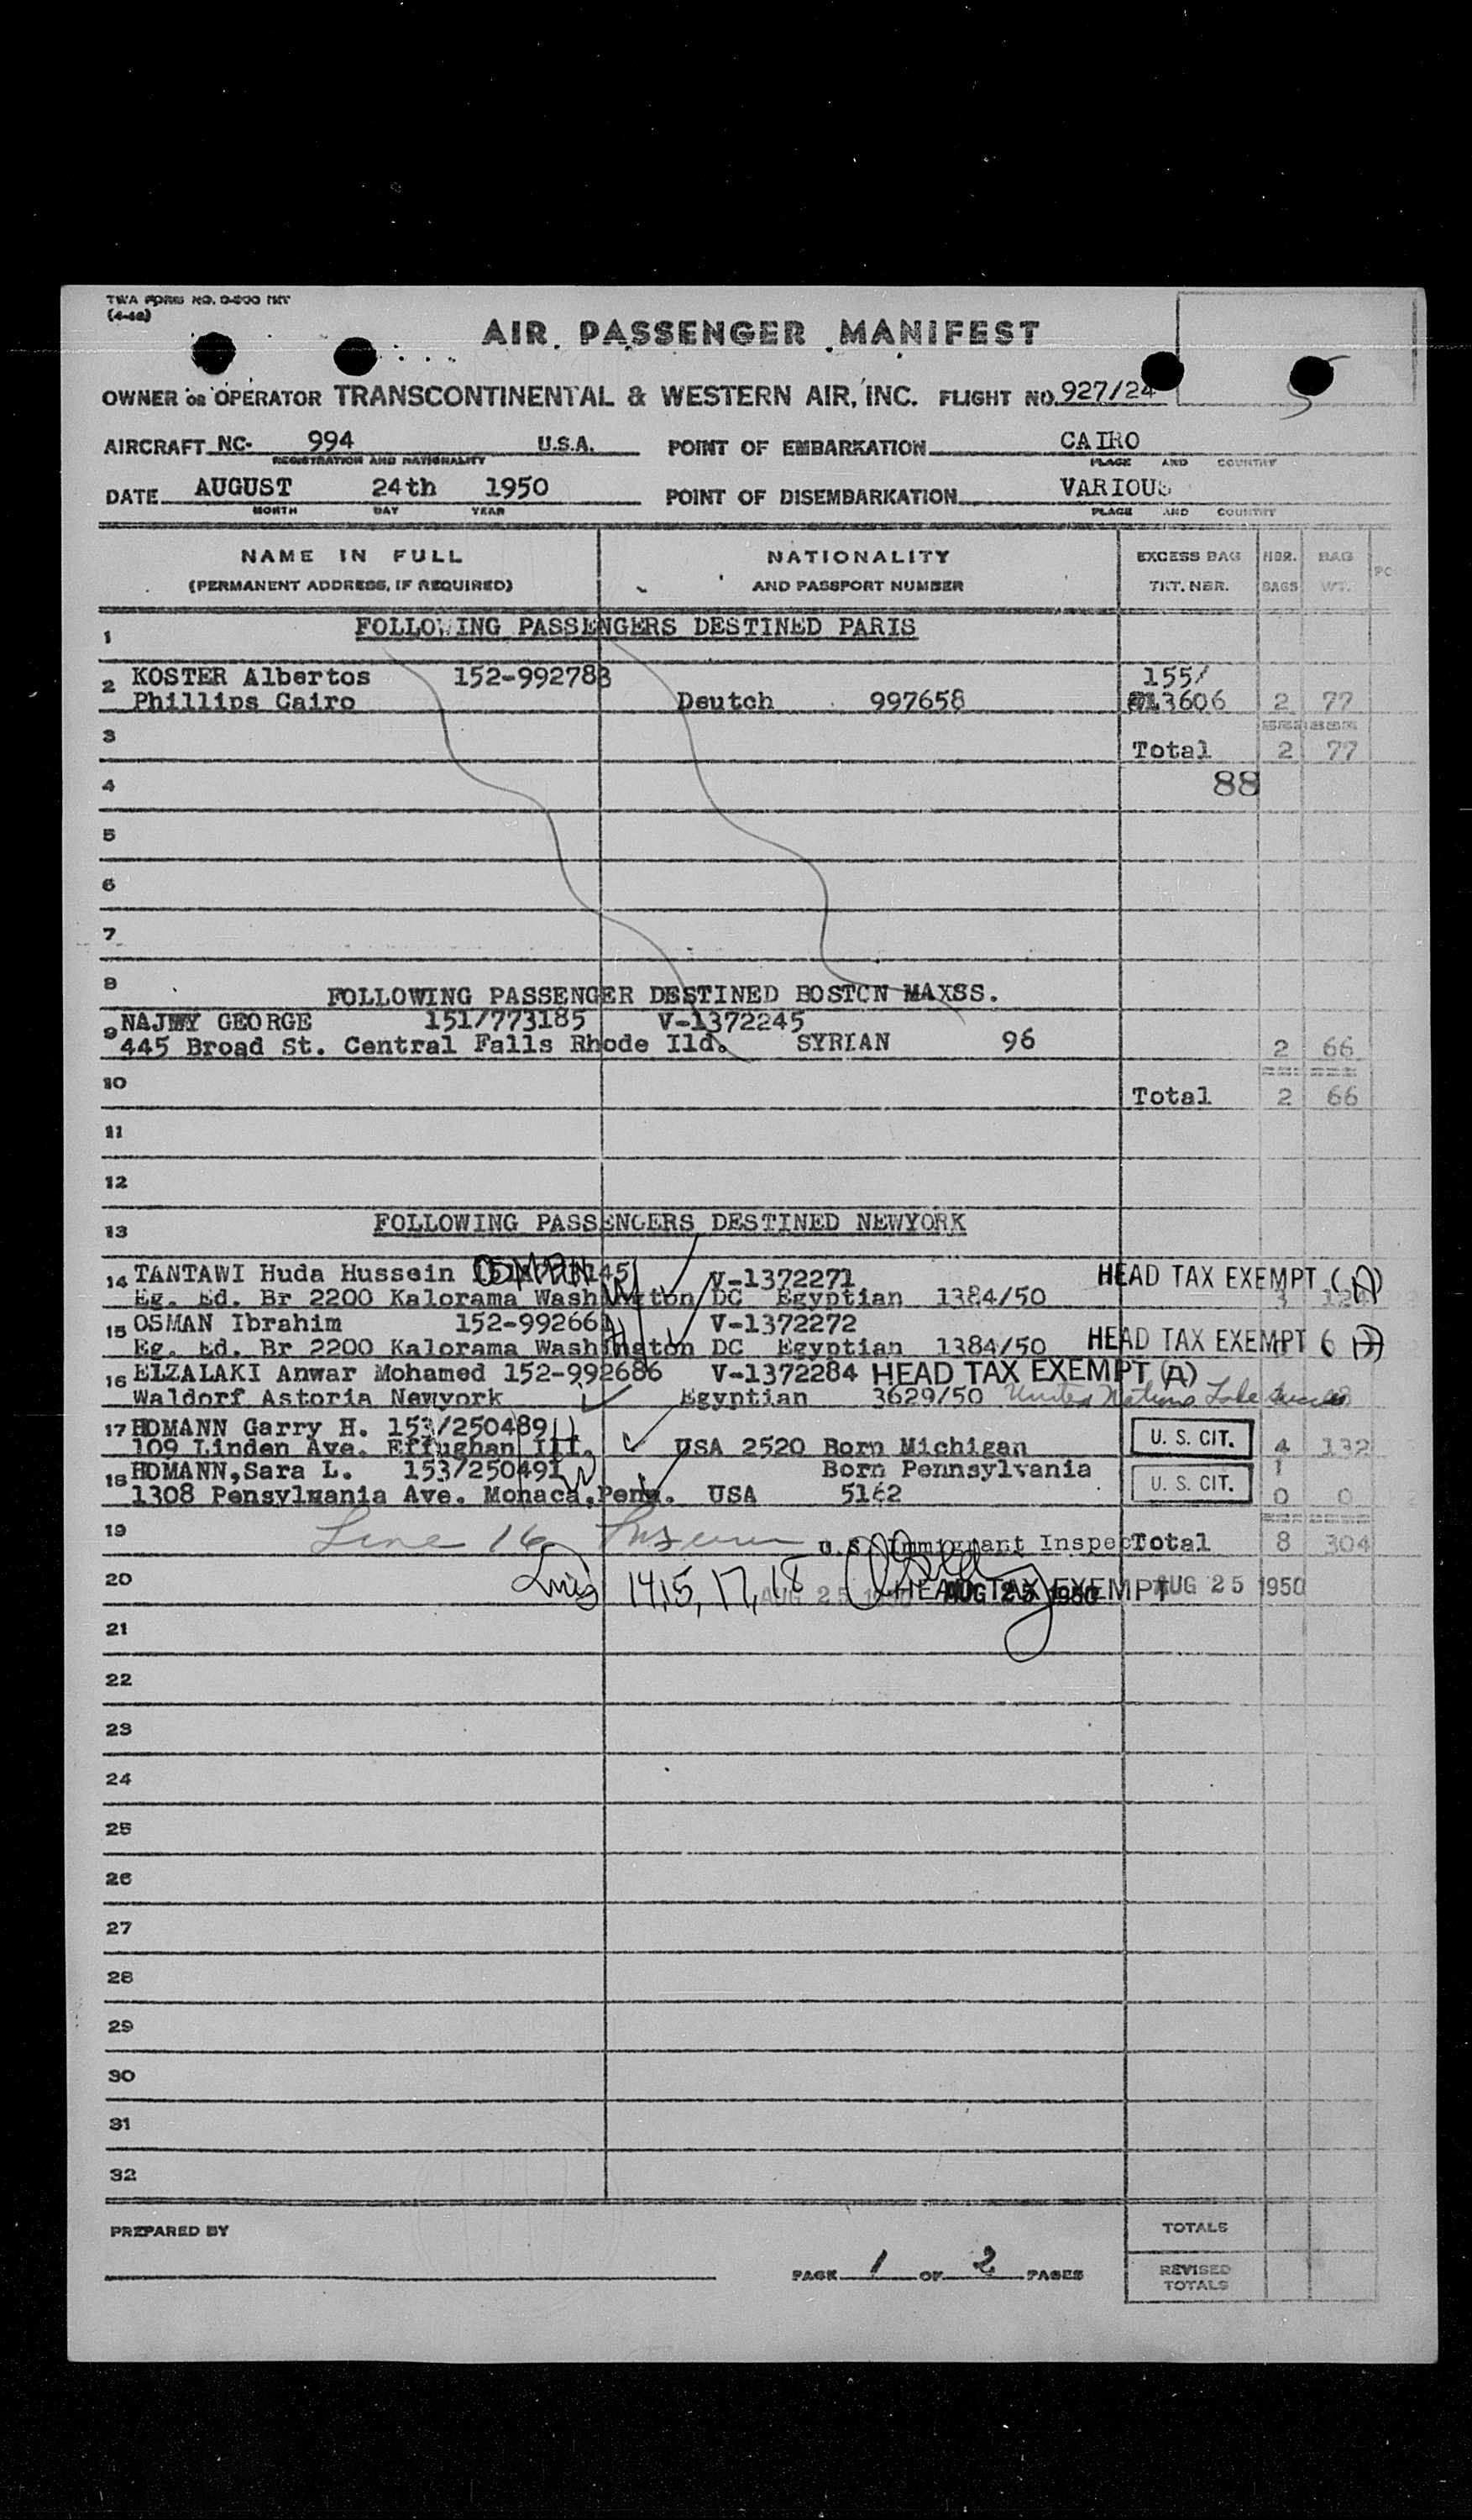 TWA FORM NO.
AIR PASSENGER MANIFEST
OWNER OR OPERATOR TRANSCONTINENTAL & WESTERN AIR, INC. FLIGHT NO. 927/24
AIRCRAFT NC- 994 U.S.A. POINT OF EMBARKATION CAIRO
REGISTRATION AND NATIONALITY PLACE AND COUNTRY
DATE AUGUST 24th 1950 POINT OF DISEMBARKATION VARIOUS
MONTH DAY YEAR PLACE AND COUNTRY
NAME IN FULL NATIONALITY EXCESS BAG NBR. BAG
(PERMANENT ADDRESS, IF REQUIRED) AND PASSPORT NUMBER TKT. NBR. BAGS WT.
1 FOLLOWING PASSENGERS DESTINED PARIS
2 KOSTER Albertos 152-992783 155/
Phillips Cairo Deutch 997658 13606 2 77
3 Total 2 77
4 88
5
6
7
8 FOLLOWING PASSENGER DESTINED BOSTON MAXSS.
9 NAJMY GEORGE 151/773185 V-1372245
445 Broad St. Central Falls Rhode Ild. SYRIAN 96 2 66
10 Total 2 66
11
12
13 FOLLOWING PASSENGERS DESTINED NEWYORK
14 TANTAWI Huda Hussein OSMAN V-1372271 HEAD TAX EXEMPT (A)
Eg. Ed. Br 2200 Kalorama Washington DC Egyptian 1384/50 3
15 OSMAN Ibrahim 152-99266 V-1372272
Eg. Ed. Br 2200 Kalorama Washington DC Egyptian 1384/50 HEAD TAX EXEMPT
16 ELZALAKI Anwar Mohamed 152-992686 V-1372284 HEAD TAX EXEMPT (A)
Waldorf Astoria Newyork Egyptian 3629/50 United Nations Lake Success
17 HOMANN Garry H. 153/250489 U. S. CIT.
109 Linden Ave. Effughan Ill. USA 2520 Born Michigan 4 132
18 HOMANN, Sara L. 153/250491 Born Pennsylvania U. S. CIT.
1308 Pensylmania Ave. Monaca, Penn. USA 5162 0 0
19 Line 16 U.S. Immigrant Inspec Total 8 304
20 14, 15, 17, 18 AUG 25 1950 HEAD TAX EXEMPT AUG 25 1950 AUG 25 1950
21
22
23
24
25
26
27
28
29
30
31
32
PREPARED BY TOTALS
PAGE 1 OF 2 PAGES REVISED
TOTALS